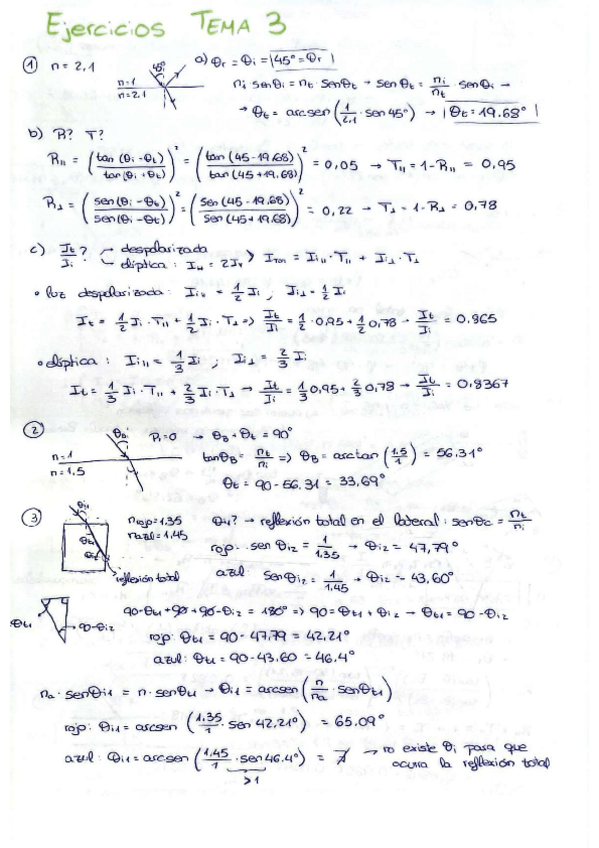 Ejercicios TEMA 3
① n = 2,1
45°
n=1
n=2.1
a) Θr = Θi = |45° = Θr|
ni senΘi = nt senΘt → senΘt = ni/nt · senΘi →
→ Θt = arcsen (1/2,1 · sen 45°) → |Θt = 19.68°|
b) R? T?
R∥ = (tan(Θi - Θt)/tan(Θi + Θt))² = (tan(45-19.68)/tan(45+19.68))² = 0,05 → T∥ = 1-R∥ = 0,95
R⊥ = (sen(Θi - Θt)/sen(Θi - Θt))² = (sen(45-19.68)/sen(45+19.68))² = 0,22 → T⊥ = 1-R⊥ = 0,78
c) It/Ii? despolarizada
elíptica : I = 2I > ITOT = Ii∥·T∥ + Ii⊥·T⊥
• luz despolarizada: Ii∥ = 1/2 Ii , Ii⊥ = 1/2 Ii
It = 1/2 Ii · T∥ + 1/2 Ii · T⊥ => It/Ii = 1/2 · 0.95 + 1/2 0,78 → It/Ii = 0.865
• elíptica : Ii∥ = 1/3 Ii ; Ii⊥ = 2/3 Ii
It = 1/3 Ii · T∥ + 2/3 Ii · T⊥ → It/Ii = 1/3 0.95 + 2/3 0,78 → It/Ii = 0.8367
②
ΘB
n=1
n=1,5
R∥=0 → ΘB + Θt = 90°
tanΘB = nt/ni => ΘB = arctan (1.5/1) = 56,31°
Θt = 90-56.31 = 33,69°
③
Θi1
Θt1
Θi2
reflexión total
nrojo=1.35
nazul=1,45
Θi1? → reflexión total en el lateral : senΘc = nt/ni
rojo: senΘi2 = 1/1.35 → Θi2 = 47,79°
azul: senΘi2 = 1/1.45 → Θi2 = 43,60°
Θt1
90-Θi2
90-Θt1 + 90 + 90-Θi2 = 180° => 90 = Θt1 + Θi2 → Θt1 = 90-Θi2
rojo: Θt1 = 90 - 47.79 = 42.21°
azul: Θt1 = 90-43.60 = 46.4°
na · senΘi1 = n · senΘt1 → Θi1 = arcsen (n/na · senΘt1)
rojo: Θi1 = arcsen (1.35/1 · sen 42.21°) = 65.09°
azul: Θi1 = arcsen (1.45/1 · sen 46.4°) = ∄ → no existe Θi para que
>1
ocurra la reflexión total